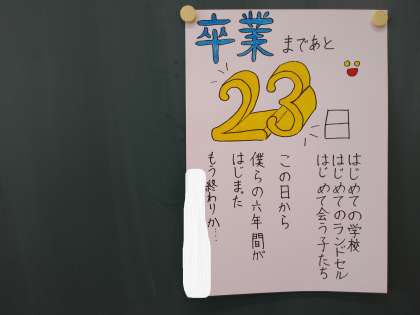 卒業まであと
23日
はじめての学校
はじめてのランドセル
はじめて会う子たち
この日から
僕らの六年間が
はじまた
もう終わりか....